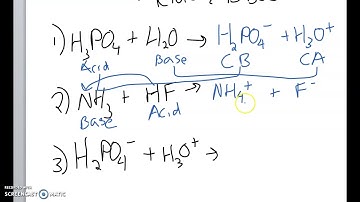 1) H₃PO₄ + H₂O → H₂PO₄⁻ + H₃O⁺
Acid Base CB CA
2) NH₃ + HF → NH₄⁺ + F⁻
Base Acid
3) H₂PO₄⁻ + H₃O⁺ →
RECORDED WITH
SCREENCAST-O-MATIC